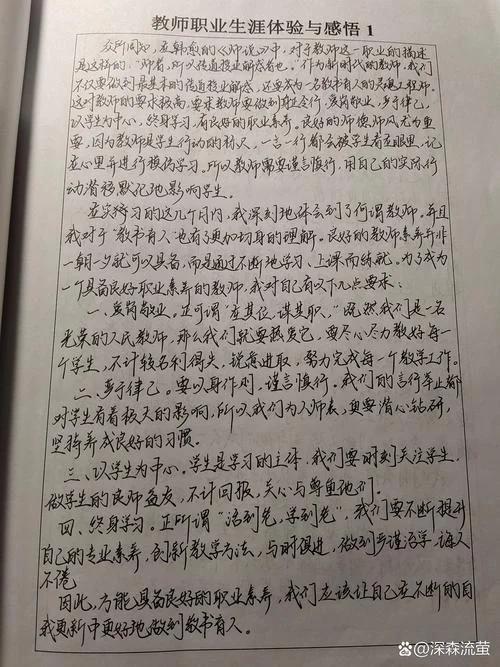 教师职业生涯体验与感悟 1
众所周知，在韩愈的《师说》中，对于教师这一职业的描述
是这样的，“师者，所以传道授业解惑者也。”作为新时代的教师，我们
不仅要做到最基本的传道授业解惑，还要成为一名教书育人的灵魂工程师。
这对教师的要求极高，要求教师要做到有令行，爱岗敬业，严于律己，
以学生为中心，终身学习，有良好的职业素养。良好的师德师风尤为重
要，因为教师是学生行动的标尺，一言一行都会被学生看在眼里，记
在心里并进行模仿学习。所以教师需要谨言慎行，用自己的实际行
动潜移默化地影响学生。
在实习的这几个月内，我深刻地体会到了何谓教师，并且
我对于“教书育人”也有了更加切身的理解。良好的教师素养并非
一朝一夕就可以具备，而是通过不断地学习、上课而练就。为了成为
一个具备良好职业素养的教师，我对自己有以下几点要求：
一、爱岗敬业。正可谓“在其位，谋其职，”既然我们是一名
光荣的人民教师，那么我们就要热爱它，要尽心尽力教好每一
个学生，不计较名利得失，锐意进取，努力完成每一个教学工作。
二、严于律己。要以身作则，谨言慎行。我们的言行举止都
对学生有着极大的影响，所以我们为人师表，更要潜心钻研，
坚持养成良好的习惯。
三、以学生为中心。学生是学习的主体，我们要时刻关注学生，
做学生的良师益友，不计回报，关心与尊重他们。
四、终身学习。正所谓“活到老，学到老”，我们要不断提升
自己的专业素养，创新教学方法，与时俱进，做到严谨治学，诲人
不倦
因此，方能具备良好的职业素养，我们应该让自己在不断的自
我更新中更好地做到教书育人。
@深森流萤